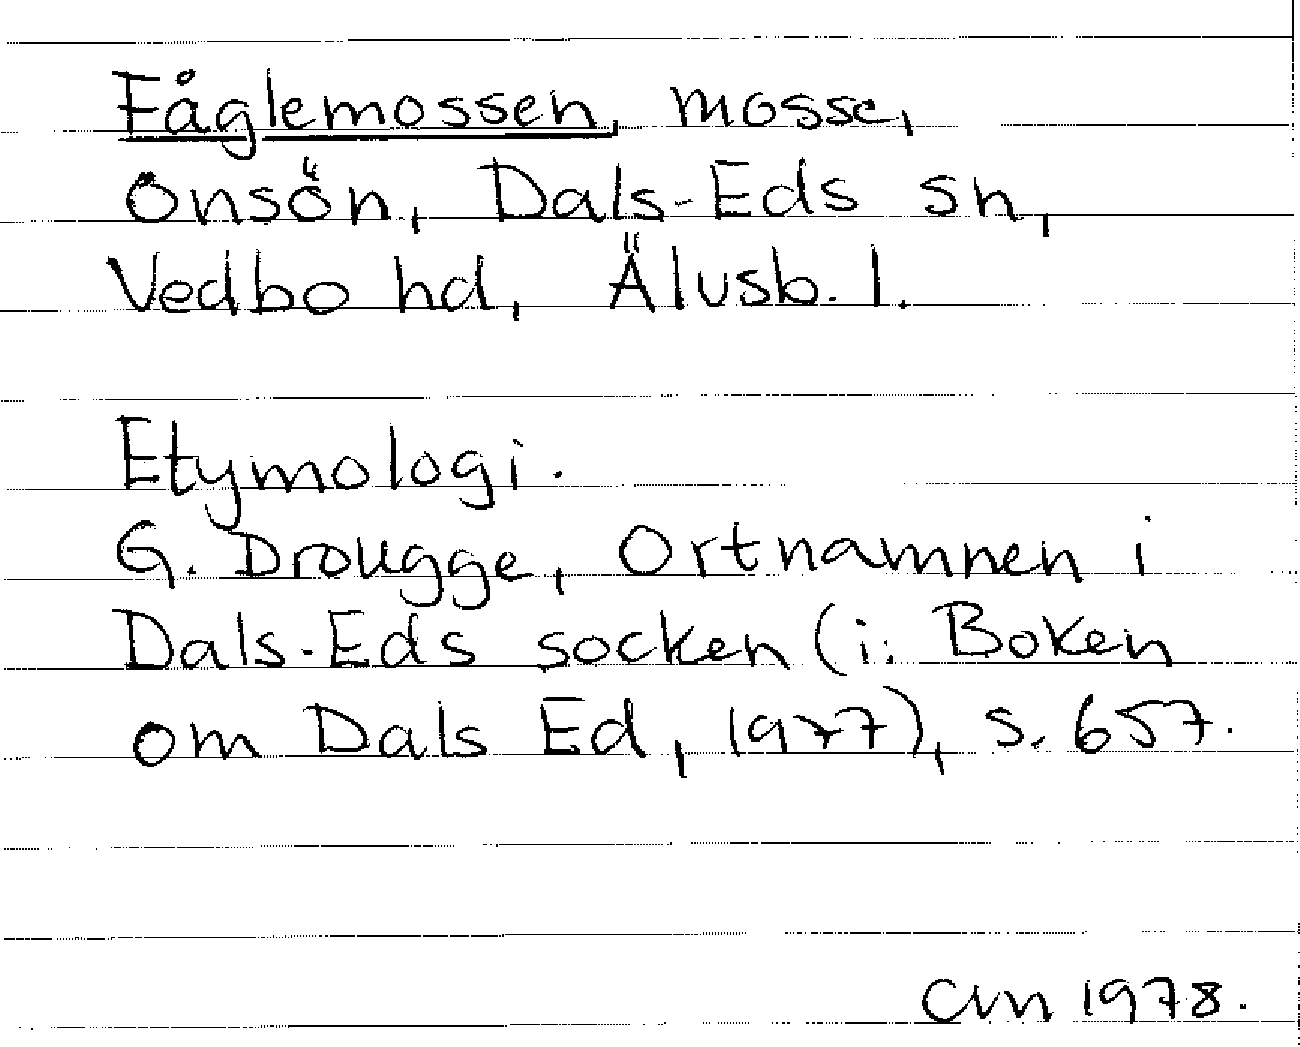 Fåglemossen, mosse,
Önsön, Dals-Eds sn,
Vedbo hd, Älvsb. l.
Etymologi.
G. Drougge, Ortnamnen i
Dals-Eds socken (i: Boken
om Dals Ed, 1977), s. 657.
1978.